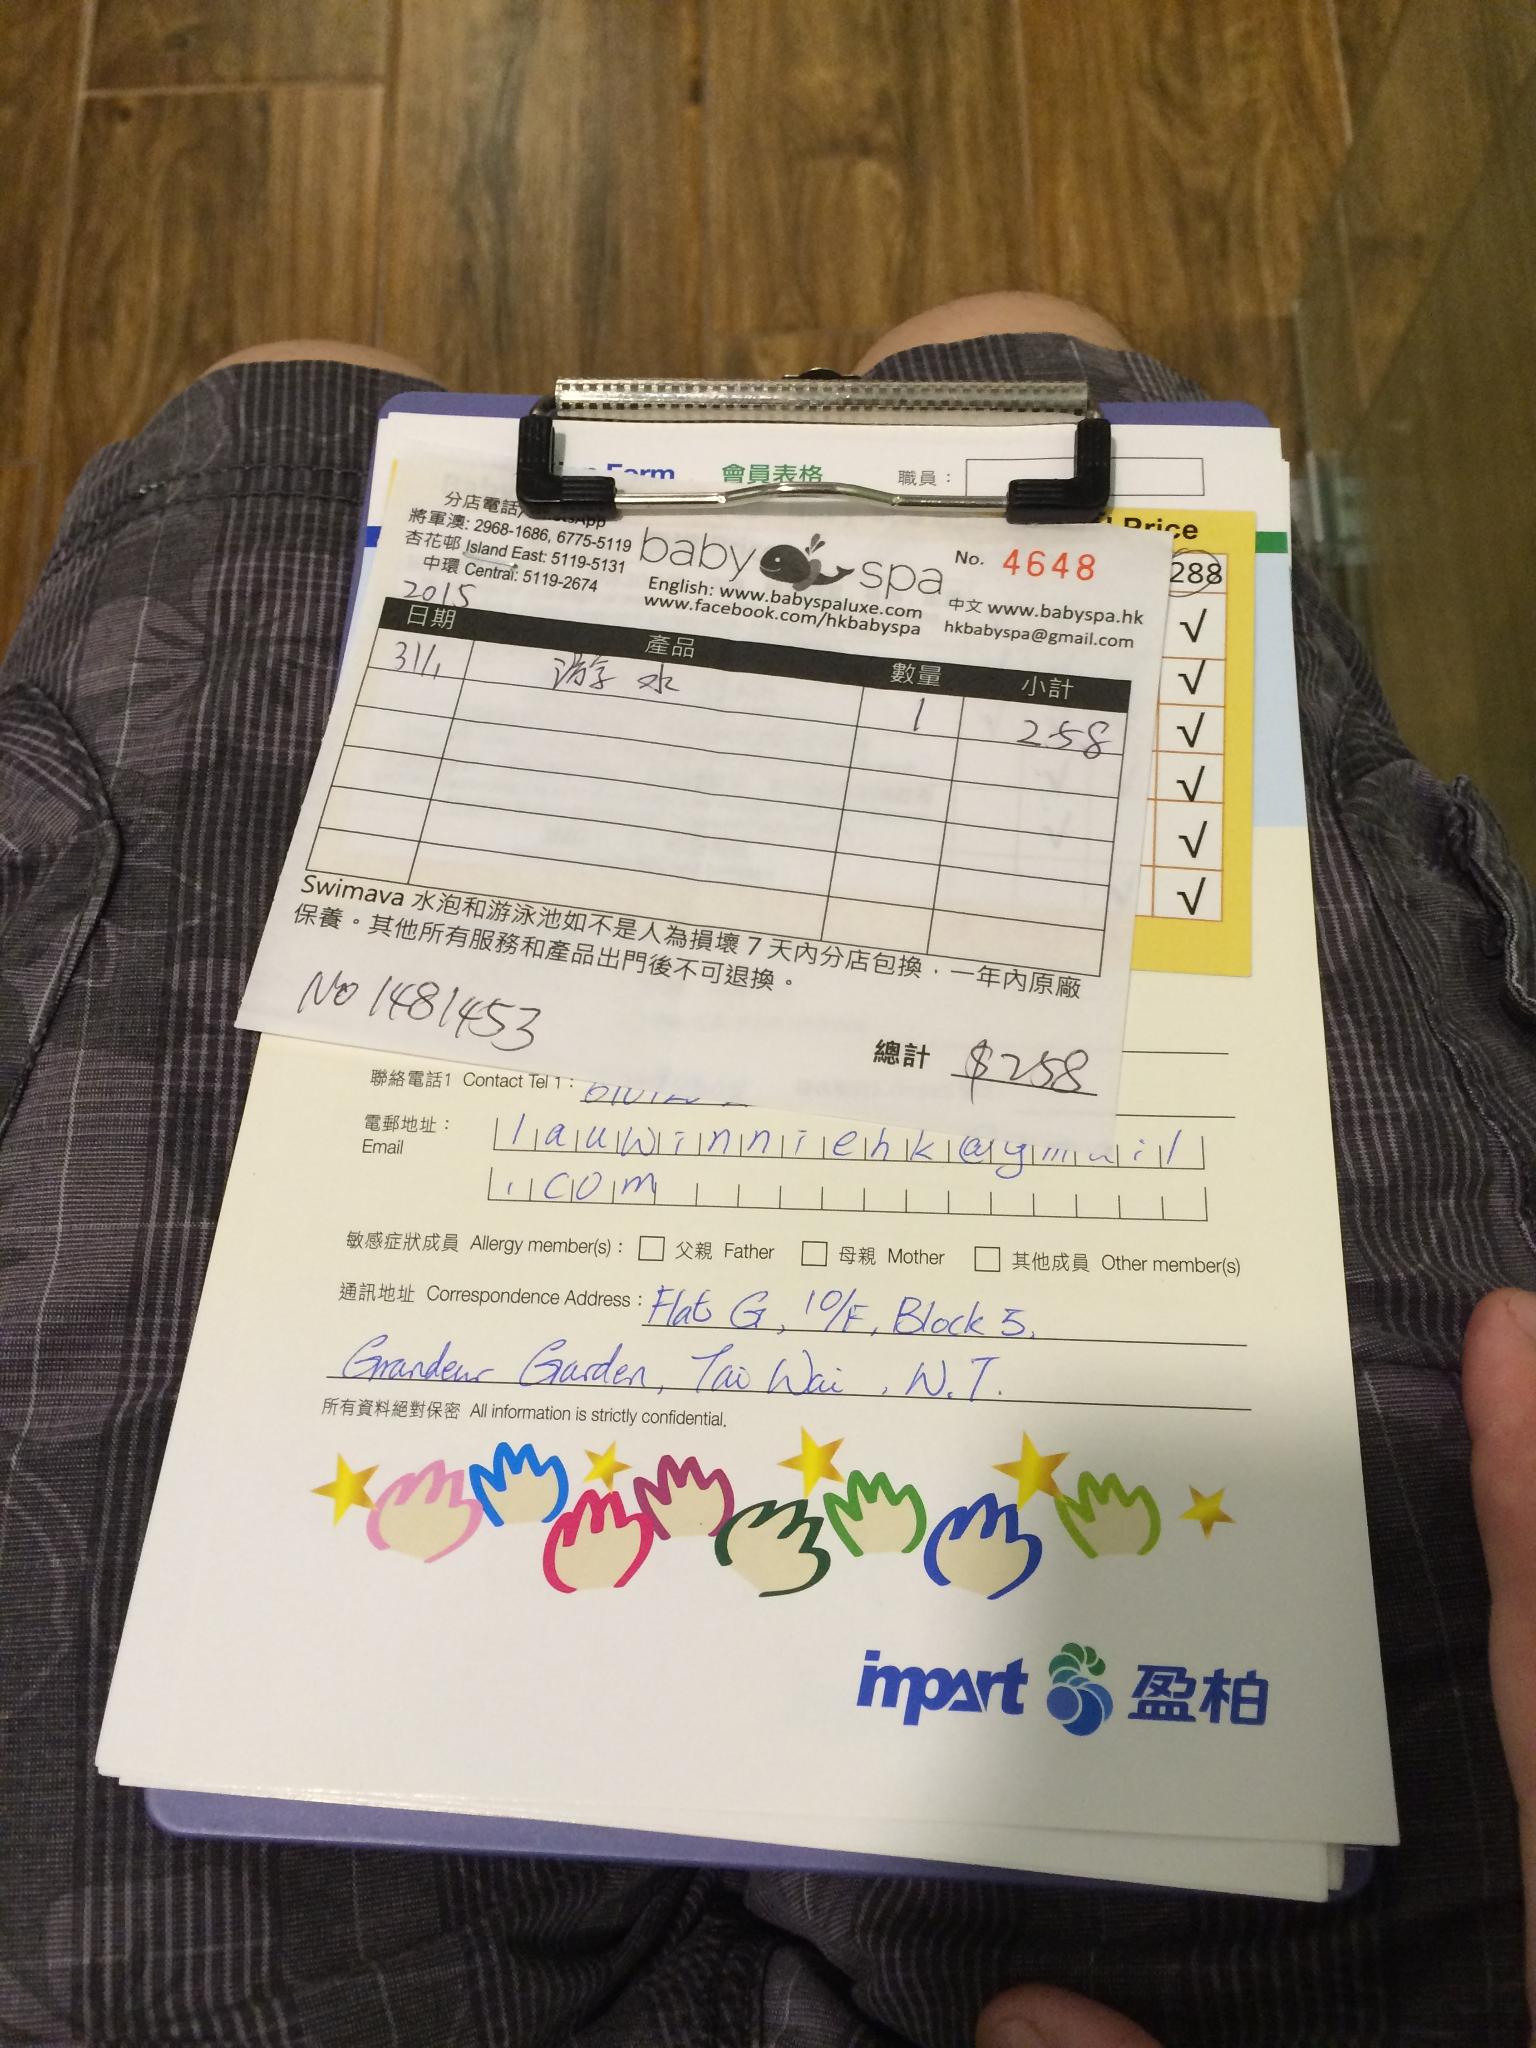 Form 會員表格 職員：
Price
288
√
√
√
√
√
√
分店電話/WhatsApp
將軍澳: 2968-1686, 6775-5119
杏花邨 Island East: 5119-5131
中環 Central: 5119-2674
baby spa
No. 4648
English: www.babyspaluxe.com 中文 www.babyspa.hk
www.facebook.com/hkbabyspa hkbabyspa@gmail.com
2015
日期 產品 數量 小計
31/1 游水 1 258
Swimava 水泡和游泳池如不是人為損壞 7 天內分店包換，一年內原廠
保養。其他所有服務和產品出門後不可退換。
No 1481453
總計 $258
聯絡電話1 Contact Tel 1：
電郵地址：
Email
lauwinniehk@gmail
.com
敏感症狀成員 Allergy member(s)： 父親 Father 母親 Mother 其他成員 Other member(s)
通訊地址 Correspondence Address： Flat G, 10/F, Block 5,
Grandeur Garden, Tai Wai, N.T.
所有資料絕對保密 All information is strictly confidential.
impart 盈柏